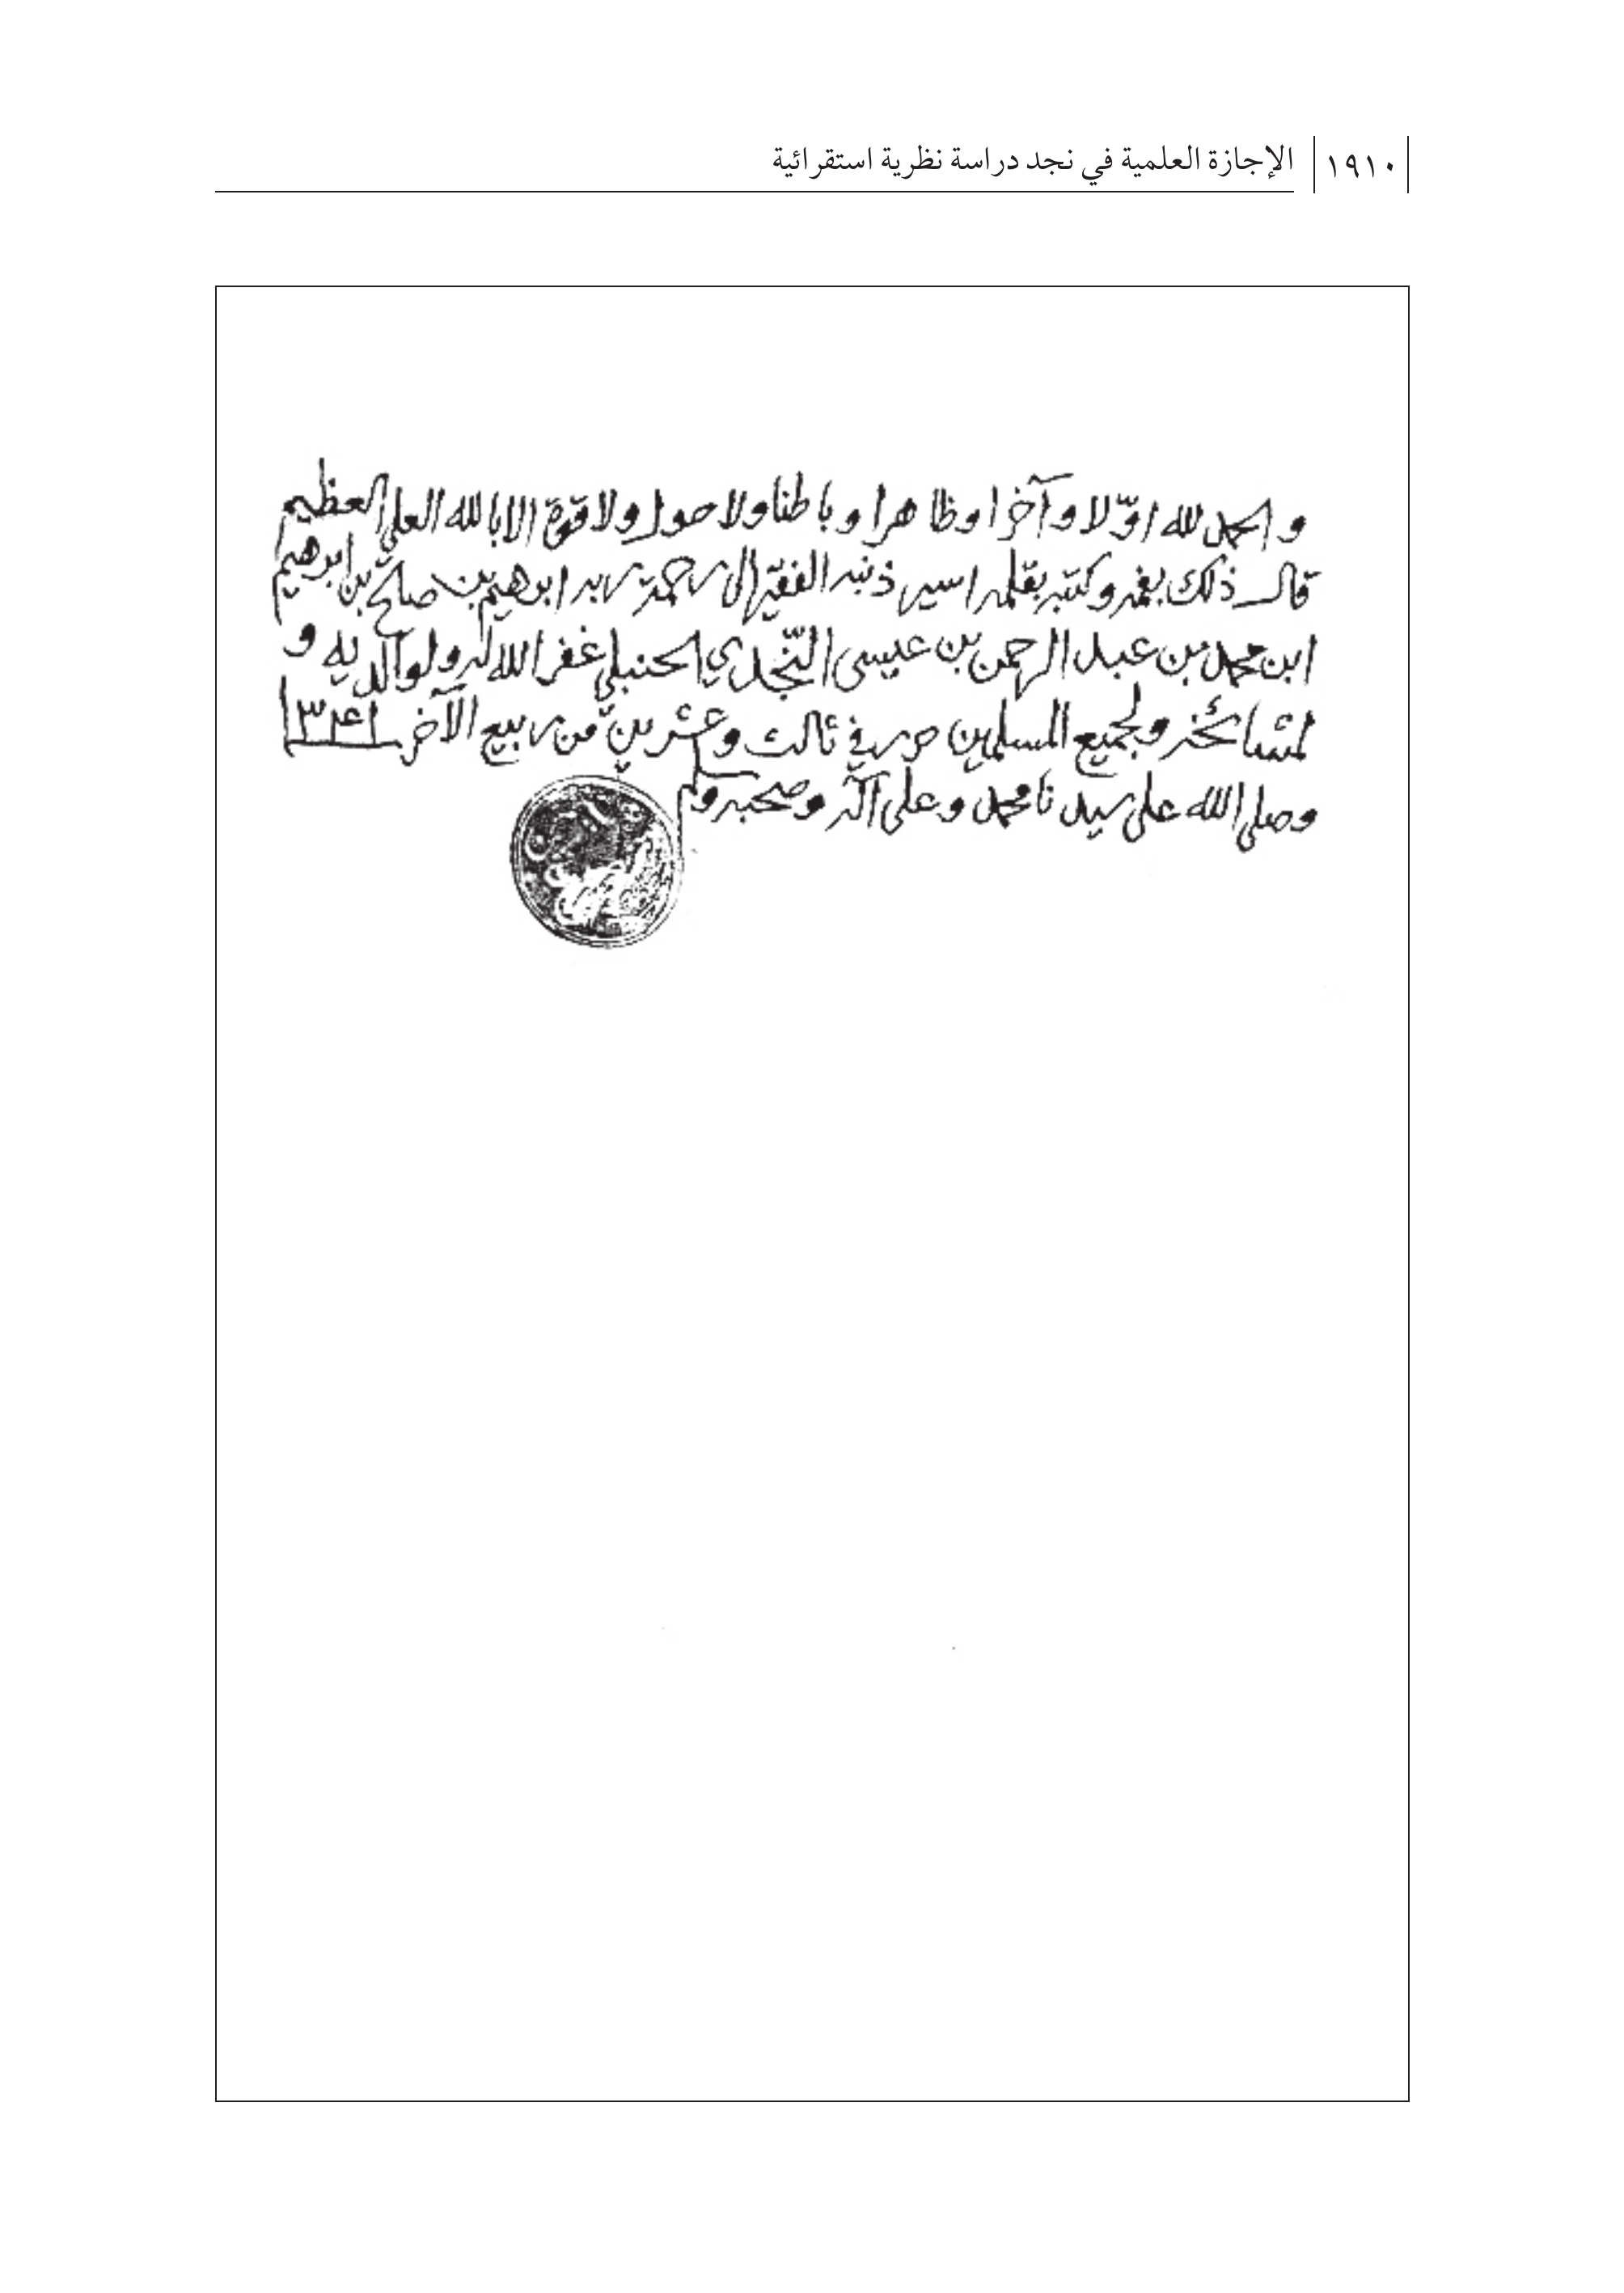 ١٩١٠ الإجازة العلمية في نجد دراسة نظرية استقرائية
و الحمد لله اوّلا وآخرا وظاهرا وباطنا ولا حول ولا قوة الا بالله العلي العظيم
قال ذلك بفمه وكتبه بقلمه اسير ذنبه الفقير الى رحمة ربه ابرهيم بن صالح بن ابرهيم
ابن محمد بن عبد الرحمن بن عيسى النّجدي الحنبلي غفر الله له ولوالديه و
لمشائخه ولجميع المسلمين حرر في ثالث وعشرين من ربيع الآخر ١٣٤١
وصلى الله على سيدنا محمد وعلى آله وصحبه وسلم